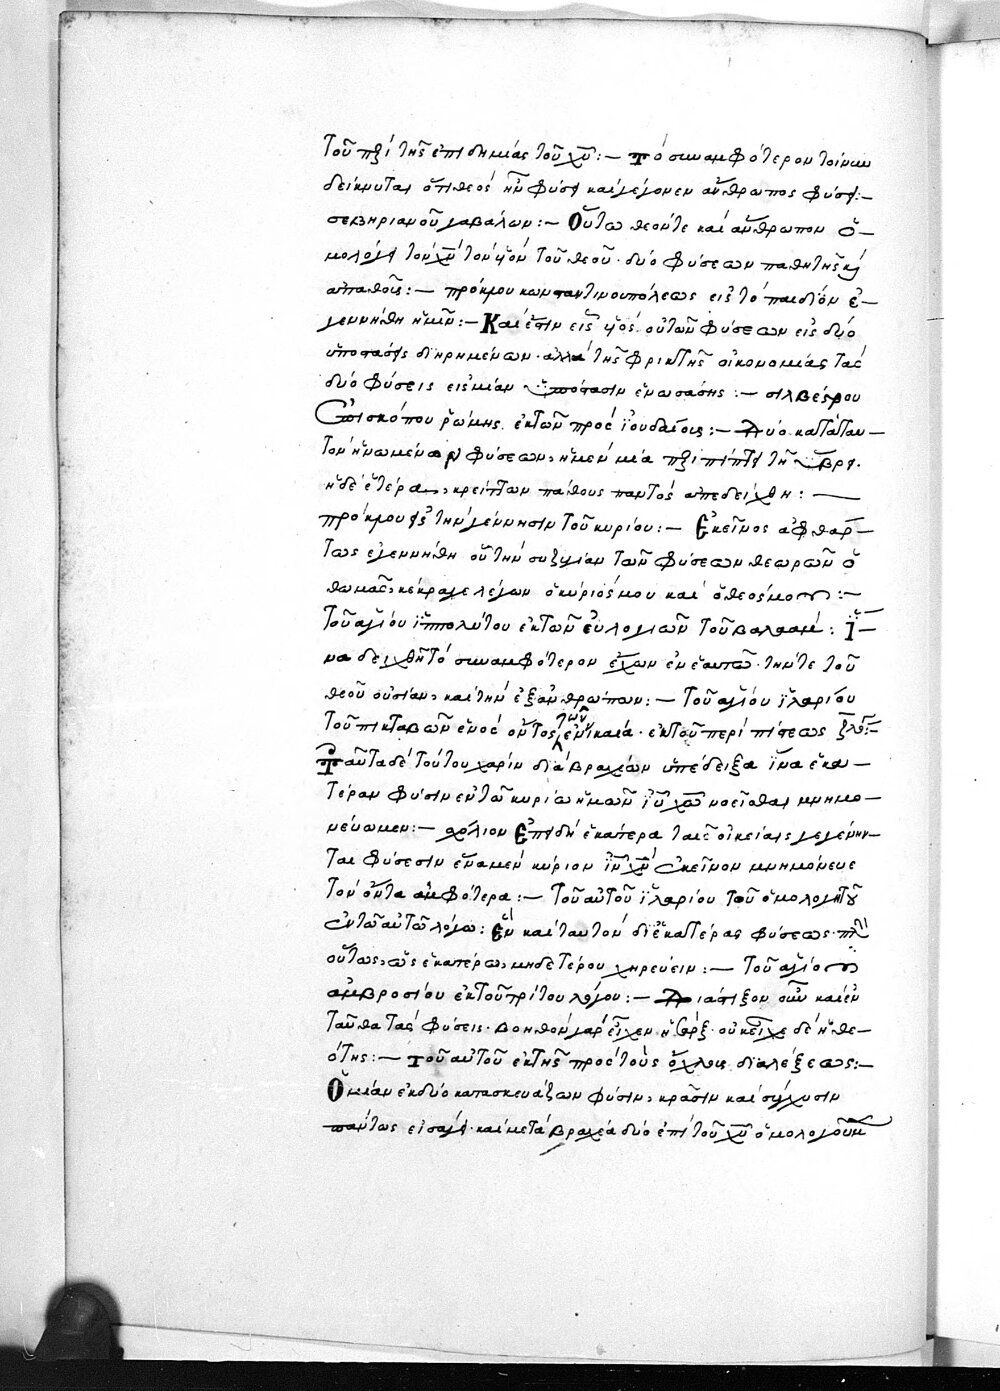 τοῦ περὶ τῆς ἐπιδημίας τοῦ χυ̅:— Τὸ συναμφότερον τοίνυν
δείκνυται ὅτι θεὸς ἦν φύσει καὶ γέγονεν ἄνθρωπος φύσει:—
σεβηριανοῦ γαβάλων:— Οὕτω θεόν τε καὶ ἄνθρωπον ὁ—
μολόγει τὸν χν̅ τὸν υἱὸν τοῦ θεοῦ· δύο φύσεων παθητῆς καὶ
ἀπαθοῦς:— πρόκλου κωνσταντινουπόλεως εἰς τὸ παιδίον ἐ—
γεννήθη ἡμῖν:— Καὶ ἔστιν εἷς υἱός, οὐ τῶν φύσεων εἰς δύο
ὑποστάσεις διῃρημένων· ἀλλὰ τῆς φρικτῆς οἰκονομίας τὰς
δύο φύσεις εἰς μίαν ὑπόστασιν ἑνωσάσης:— σιλβέστρου
ἐπισκόπου ῥώμης ἐκ τῶν πρὸς ἰουδαίους:— Δύο κατὰ ταυ—
τὸν ἡνωμένων φύσεων, ἡ μὲν μία περιπίπτει τῇ ὕβρει·
ἡ δὲ ἑτέρα, κρείττων πάθους παντὸς ἀπεδείχθη:—
πρόκλου εἰς τὴν γέννησιν τοῦ κυρίου:— Ἐκεῖνος ἀφθάρ—
τως ἐγεννήθη οὗ τὴν συζυγίαν τῶν φύσεων θεωρῶν ὁ
θωμᾶς, κέκραγε λέγων ὁ κύριός μου καὶ ὁ θεός μου:—
τοῦ ἁγίου ἱππολύτου ἐκ τῶν εὐλογιῶν τοῦ βαλαάμ: Ἵ—
να δειχθῇ τὸ συναμφότερον ἔχων ἐν ἑαυτῷ· τήν τε τοῦ
θεοῦ οὐσίαν, καὶ τὴν ἐξ ἀνθρώπων:— Τοῦ ἁγίου ἱλαρίου
τοῦ πικταβῶν ἑνὸς ὄντος τῶν ἐν νικαίᾳ· ἐκ τοῦ περὶ πίστεως
Ταῦτα δὲ τούτου χάριν διὰ βραχέων ὑπέδειξα ἵνα ἑκα—
τέραν φύσιν ἐν τῷ κυρίῳ ἡμῶν ιυ̅ χω̅ νοεῖσθαι μνημο—
νεύωμεν:— σχόλιον Ἐπειδὴ ἑκάτερα ταῖς οἰκείαις γεγένην—
ται φύσεσιν ἕνα μὲν κύριον ιν̅ χν̅ ἐκεῖνον μνημόνευε
τὸν ὄντα ἀμφότερα:— Τοῦ αὐτοῦ ἱλαρίου τοῦ ὁμολογητοῦ
ἐν τῷ αὐτῷ λόγῳ: Ἓν καὶ ταυτὸν δι' ἑκατέρας φύσεως· πλὴν
οὕτως, ὡς ἑκατέρῳ, μηδετέρου χηρεύειν:— Τοῦ ἁγίου
ἀμβροσίου ἐκ τοῦ τρίτου λόγου:— Διάστιξον οὖν κἀν
ταῦθα τὰς φύσεις· βοηθὸν γὰρ εἶχεν ἡ σάρξ· οὐκ εἶχε δὲ ἡ θε—
ότης:— Τοῦ αὐτοῦ ἐκ τῆς πρὸς τοὺς ὄχλους διαλέξεως:—
Ὁ μίαν ἐκ δύο κατασκευάζων φύσιν, κρᾶσιν καὶ σύγχυσιν
πάντως εἰσάγει· καὶ μετὰ βραχέα δύο ἐπὶ τοῦ χυ̅ ὁμολογοῦμεν